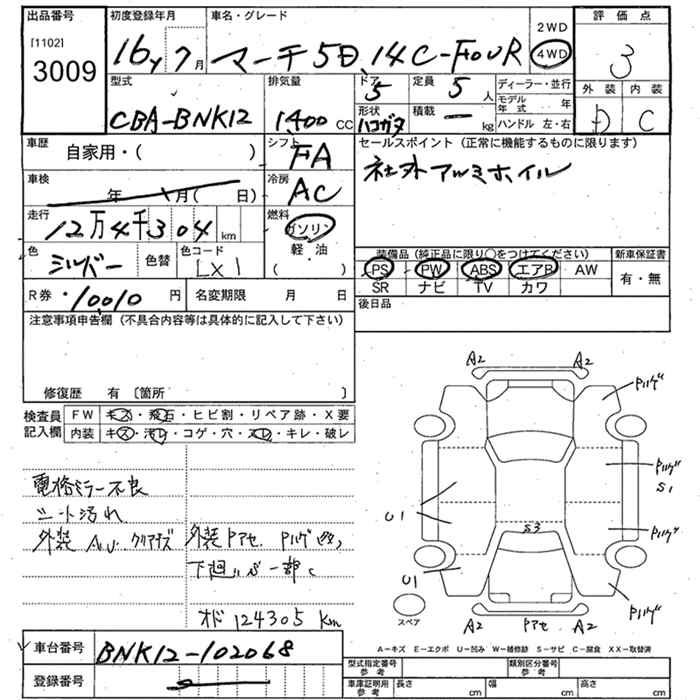 出品番号
[1102]
3009
初度登録年月
16y 7月
車名・グレード
マーチ5D 14C-FOUR
2WD
4WD
評価点
3
型式
CBA-BNK12
排気量
1400 CC
ドア
5
定員
5 人
形状
ハコガタ
積載
ー kg
ディーラー・並行
モデル年式 年
ハンドル 左・右
外装 内装
D C
車歴
自家用・( )
シフト
FA
車検
年 月( 日)
冷房
AC
走行
12万4千304 km
燃料
ガソリン
軽・油
( )
色
シルバー
色替
色コード
LX1
R券・10010 円
名変期限 月 日
セールスポイント (正常に機能するものに限ります)
社外アルミホイル
装備品(純正品に限り○をつけてください)
PS PW ABS エアB AW
SR ナビ TV カワ
新車保証書
有・無
後日品
注意事項申告欄 (不具合内容等は具体的に記入して下さい)
修復歴 有 〔箇所 〕
検査員記入欄
FW キズ・飛石・ヒビ割・リペア跡・X要
内装 キズ・汚レ・コゲ・穴・スレ・キレ・破レ
電格ミラー不良
シート汚れ
外装 A.U. クリアハゲ
外装Pアセ. Pハゲ
下廻り 一部C
オド 124305 Km
A2 A2
Pハゲ
Pハゲ
S1
U1
S3
Pハゲ
U1
Pハゲ
スペア
A2 Pアセ A2
A-キズ E-エクボ U-凹み W-補修跡 S-サビ C-腐食 XX-取替済
車台番号
BNK12-102068
登録番号
型式指定番号 参考
類別区分番号 参考
車庫証明用 参考
長さ cm
幅 cm
高さ cm